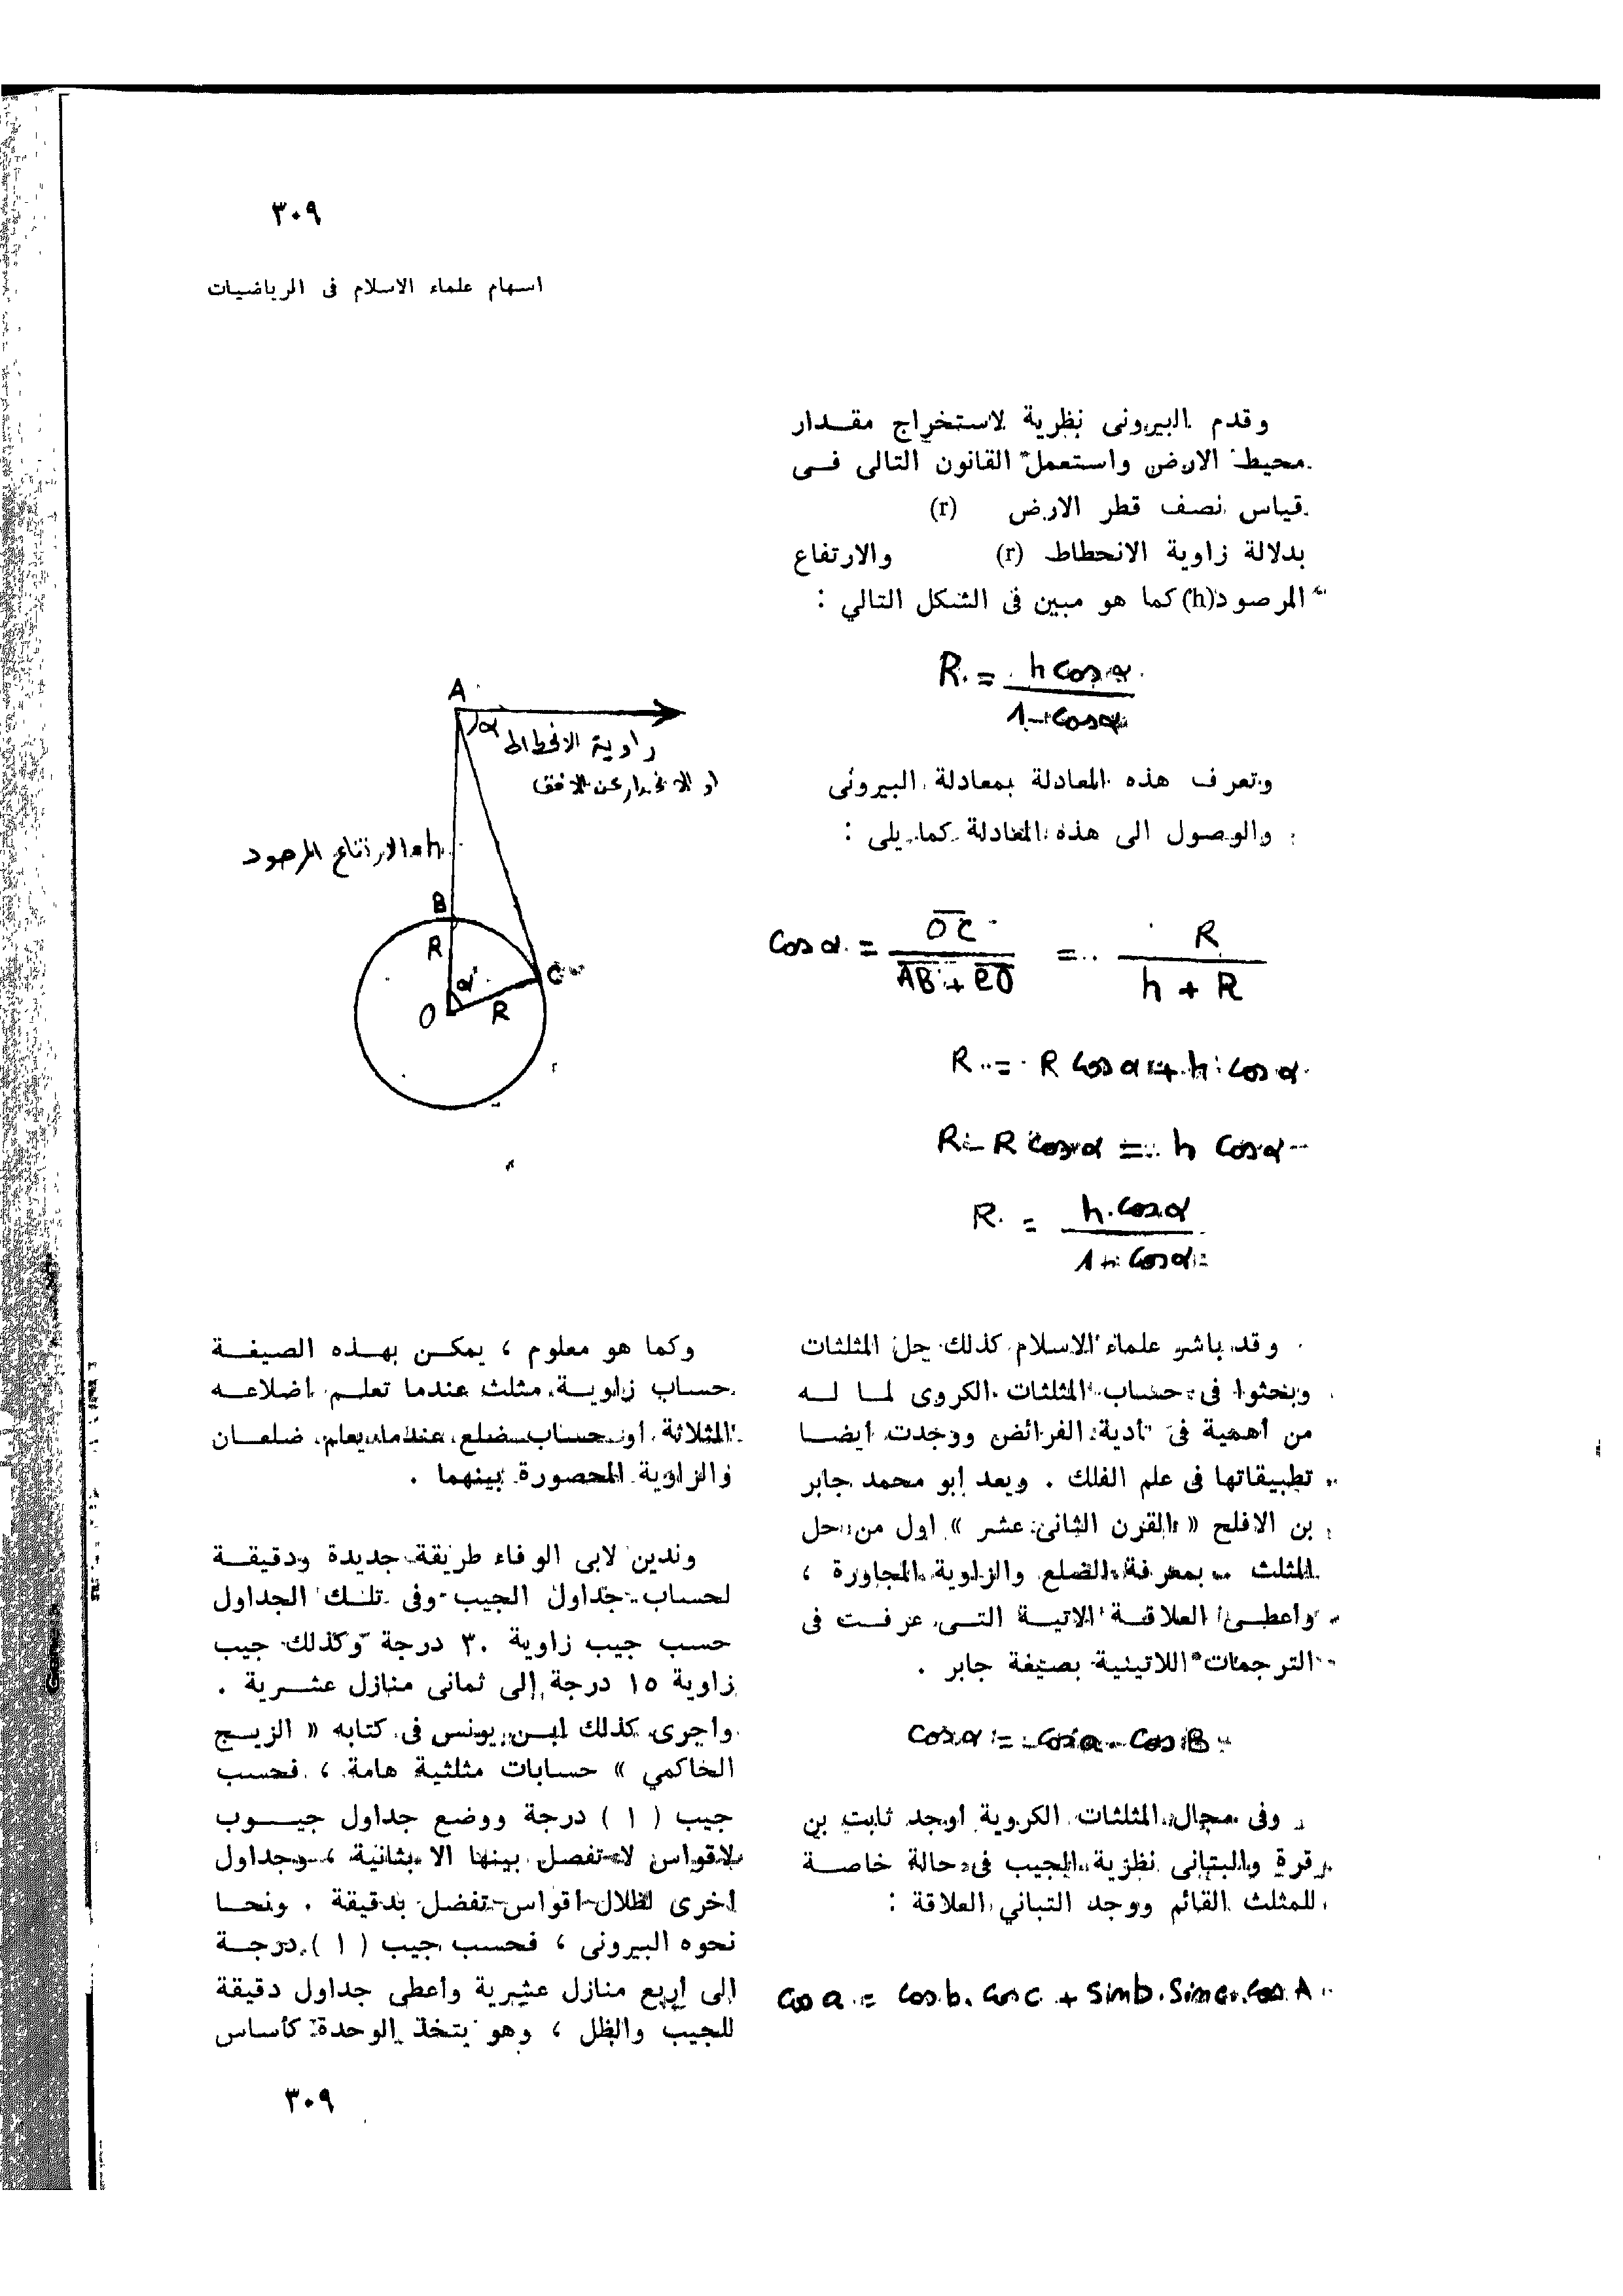 ٣٠٩
اسهام علماء الاسلام فى الرياضيات
وقدم البيرونى نظرية لاستخراج مقدار
محيط الارض واستعمل القانون التالى فى
قياس نصف قطر الارض (r)
بدلالة زاوية الانحطاط (r) والارتفاع
المرصود(h)كما هو مبين فى الشكل التالي :
R = h cos α / 1 - cos α
وتعرف هذه المعادلة بمعادلة البيرونى
والوصول الى هذه المعادلة كما يلى :
Cos α = OC / AB + CO = R / h + R
R = R cos α + h cos α
R - R cos α = h cos α
R = h . cos α / 1 - cos α
A
α
زاوية الانحطاط
او الانحدار عن الافق
h = الارتفاع المرصود
B
R
α
C
O
R
وقد باشر علماء الاسلام كذلك حل المثلثات
وبحثوا فى حساب المثلثات الكروى لما له
من أهمية فى تأدية الفرائض ووجدت أيضا
تطبيقاتها فى علم الفلك . ويعد ابو محمد جابر
بن الافلح « القرن الثانى عشر » اول من حل
المثلث بمعرفة الضلع والزاوية المجاورة ،
وأعطى العلاقة الاتية التى عرفت فى
الترجمات اللاتينية بصيغة جابر .
Cos α = cos a . cos B
وفى مجال المثلثات الكروية اوجد ثابت بن
قرة والبتانى نظرية الجيب فى حالة خاصة
للمثلث القائم ووجد التباني العلاقة :
Cos a = Cos b . Cos c + Sin b . Sin c . Cos A
وكما هو معلوم ، يمكن بهذه الصيغة
حساب زاوية مثلث عندما تعلم اضلاعه
الثلاثة او حساب ضلع عندما يعلم ضلعان
والزاوية المحصورة بينهما .
وندين لابى الوفاء طريقة جديدة ودقيقة
لحساب جداول الجيب وفى تلك الجداول
حسب جيب زاوية ٣٠ درجة وكذلك جيب
زاوية ١٥ درجة إلى ثمانى منازل عشرية .
واجرى كذلك ابن يونس فى كتابه « الزيج
الحاكمي » حسابات مثلثية هامة ، فحسب
جيب ( ١ ) درجة ووضع جداول جيوب
لاقواس لا تفصل بينها الا بثانية ، وجداول
اخرى لظلال اقواس تفضل بدقيقة . ونحا
نحوه البيرونى ، فحسب جيب ( ١ ) درجة
إلى أربع منازل عشرية وأعطى جداول دقيقة
للجيب والظل ، وهو يتخذ الوحدة كأساس
٣٠٩